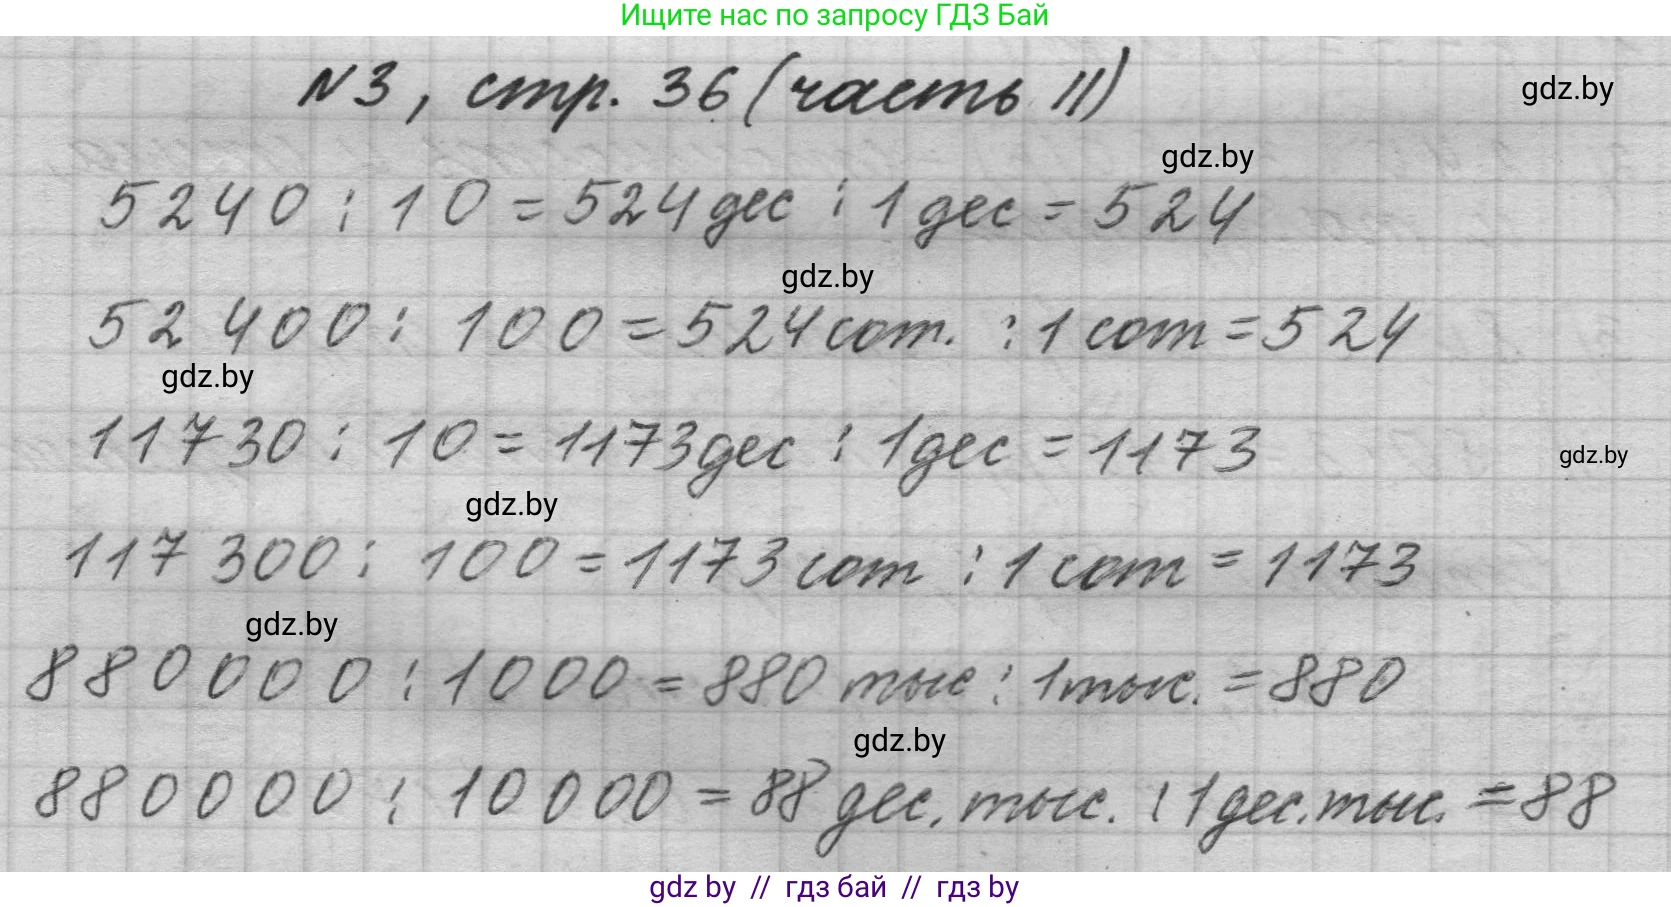 Ищите нас по запросу ГДЗ Бай
N3, стр. 36 (часть II)
gdz.by
gdz.by
5240 : 10 = 524 дес : 1 дес = 524
gdz.by
52 400 : 100 = 524 сот. : 1 сот = 524
gdz.by
11730 : 10 = 1173 дес : 1 дес = 1173
gdz.by
gdz.by
117 300 : 100 = 1173 сот : 1 сот = 1173
gdz.by
880000 : 1000 = 880 тыс : 1 тыс. = 880
gdz.by
880000 : 10000 = 88 дес. тыс. : 1 дес. тыс. = 88
gdz by // гдз бай // гдз by